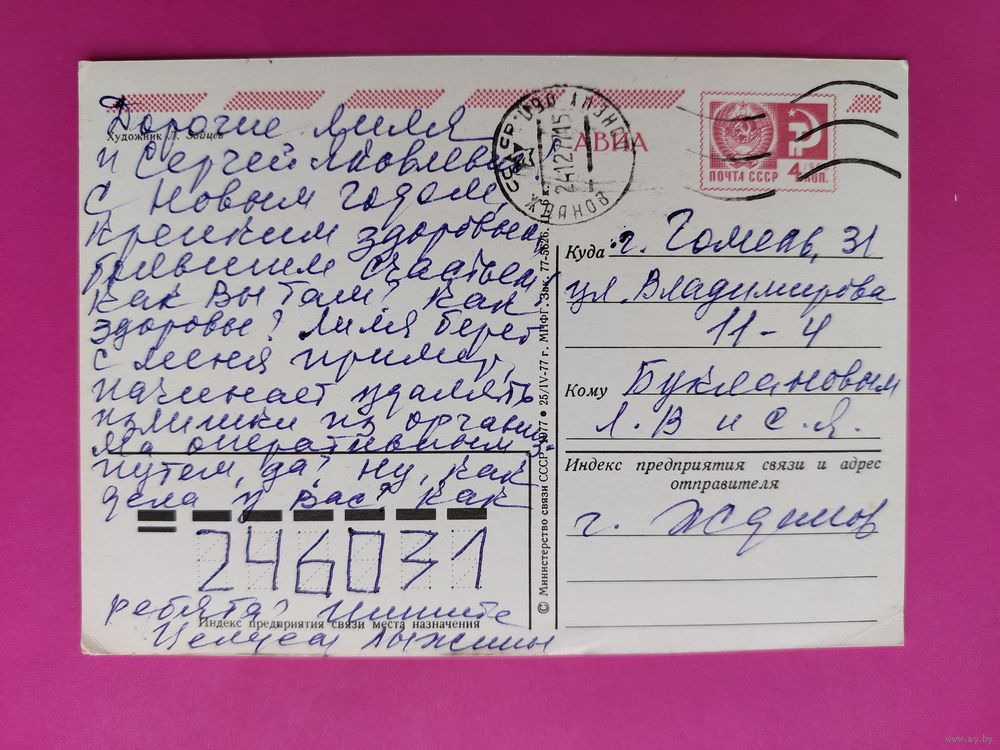 Дорогие Лиля
Художник Л. Зайцев
и Сергей Яковлевич
С Новым годом,
крепким здоровьем,
большим счастьем!
Как Вы там? Как
здоровье? Лиля берет
с меня пример,
начинает удалять
излишки из организ-
ма оперативным
путем, да? Ну, как
дела у Вас? Как
246031
ребята? Пишите
Индекс предприятия связи места назначения
Целуем Лыжины
© Министерство связи СССР. 1977 • 25/IV-77 г. МПФГ. Зак. 77-5626.
СССР
ЖДАНОВ
241277 15
АВИА
ПОЧТА СССР 4 КОП.
Куда г. Гомель, 31
ул. Владимирова
11-4
Кому Буклановым
Л.В и С.Я.
Индекс предприятия связи и адрес
отправителя
г. Жданов
www.ay.by